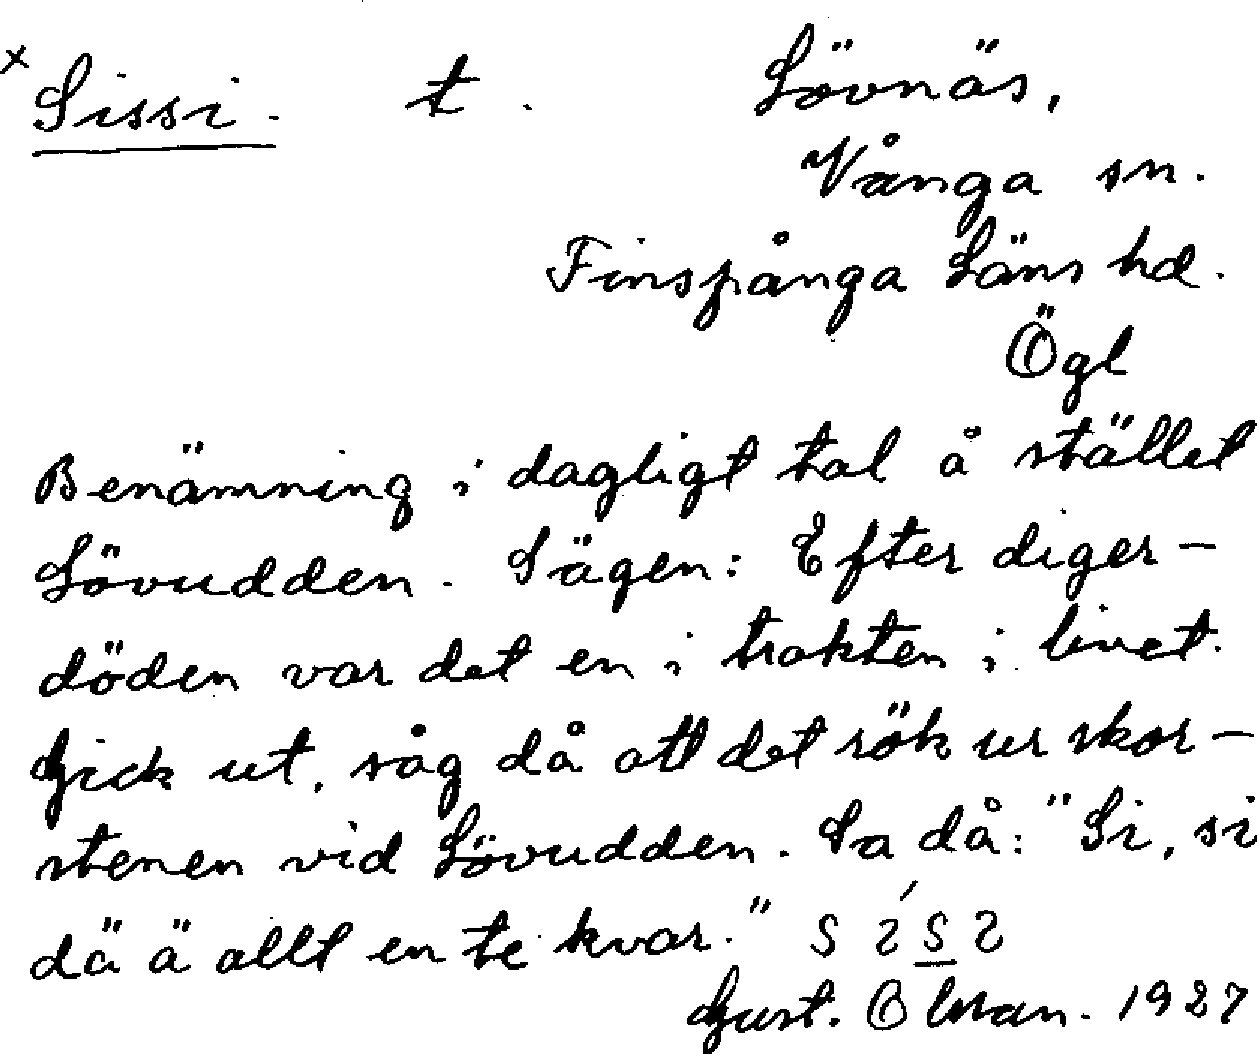 × Sissi. t. Lövnäs,
Vånga sn.
Finspånga Läns hd.
Ögl
Benämning i dagligt tal å stället
Lövudden. Sägen: Efter diger-
döden var det en i trakten i livet.
Gick ut, såg då att det rök ur skor-
stenen vid Lövudden. Sa då: "Si, si
dä ä allt en te kvar."
Gust. Olman. 1927